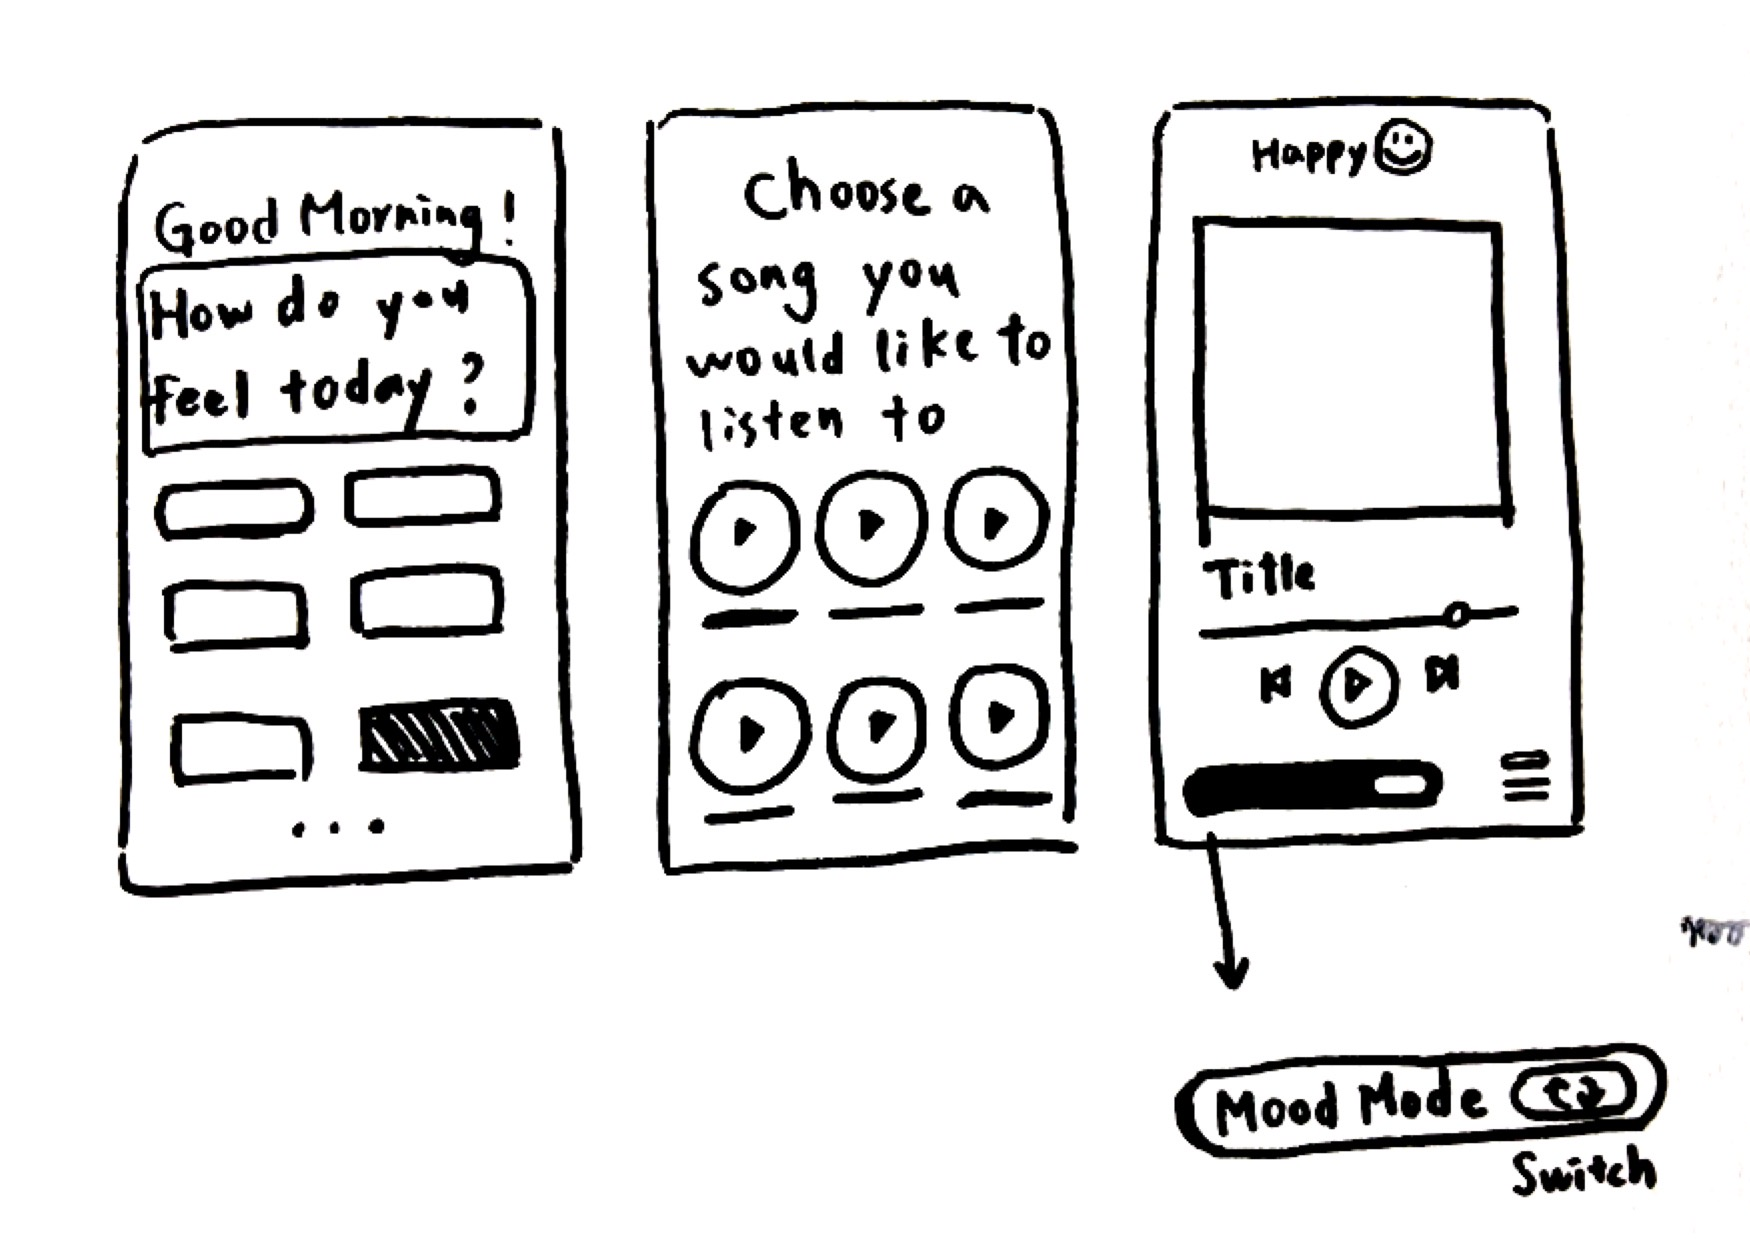 Good Morning!
How do you
feel today?
Choose a
song you
would like to
listen to
Happy
Title
Mood Mode
Switch